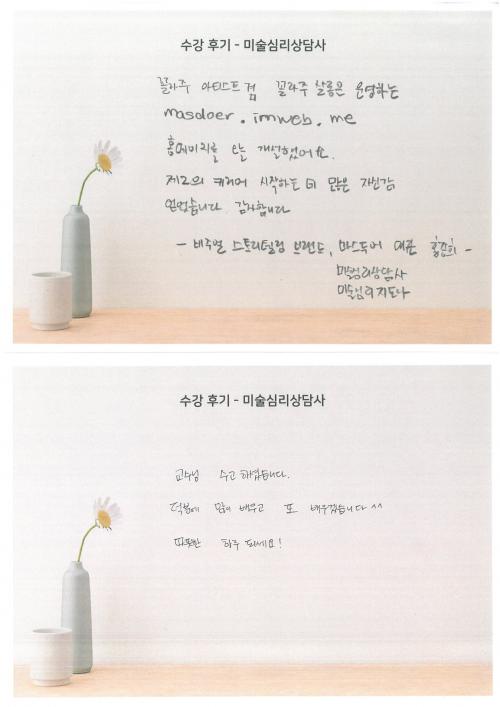 수강 후기 - 미술심리상담사
꼴라주 아티스트겸 꼴라주 살롱은 운영하는
masdoer.imweb.me
홈페이지를 오늘 개설했어요.
제2의 커리어 시작하는데 많은 자신감
얻었습니다. 감사합니다
- 비주얼 스토리텔링 브랜드, 마스두어 대표 -
미술심리상담사
미술심리지도사
수강 후기 - 미술심리상담사
교수님 수고하셨습니다.
덕분에 많이 배우고 또 배우겠습니다 ^^
따뜻한 하루 되세요!